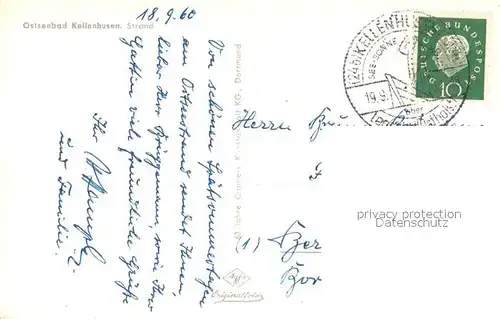 18.9.60
Ostseebad Kellenhusen. Strand
Von schönen Spätsommertagen
am Ostseestrand sendet Ihnen,
lieber Herr Brüggemann, sowie Ihrer
Gattin viele freundliche Grüße
Ihr
und Familie.
Cramers Kunstanstalt KG., Dortmund
Agfa
Originalfoto
(24b) KELLENHUSEN
SEE · SONNE
19.9.
über
DEUTSCHE BUNDESPOST
10
Herrn
(1) Ber
privacy protection
Datenschutz